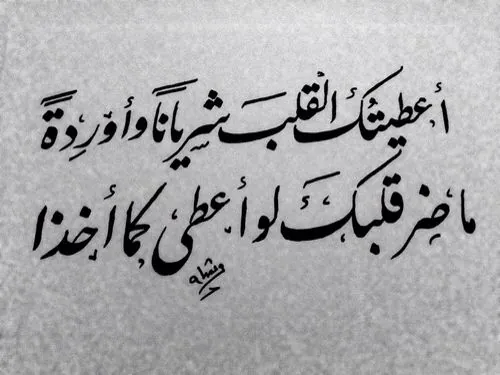 أعطيتُكَ القلْبَ شرياناً وأوْرِدةً
ما ضر قلبكَ لو أعطى كما أخذا